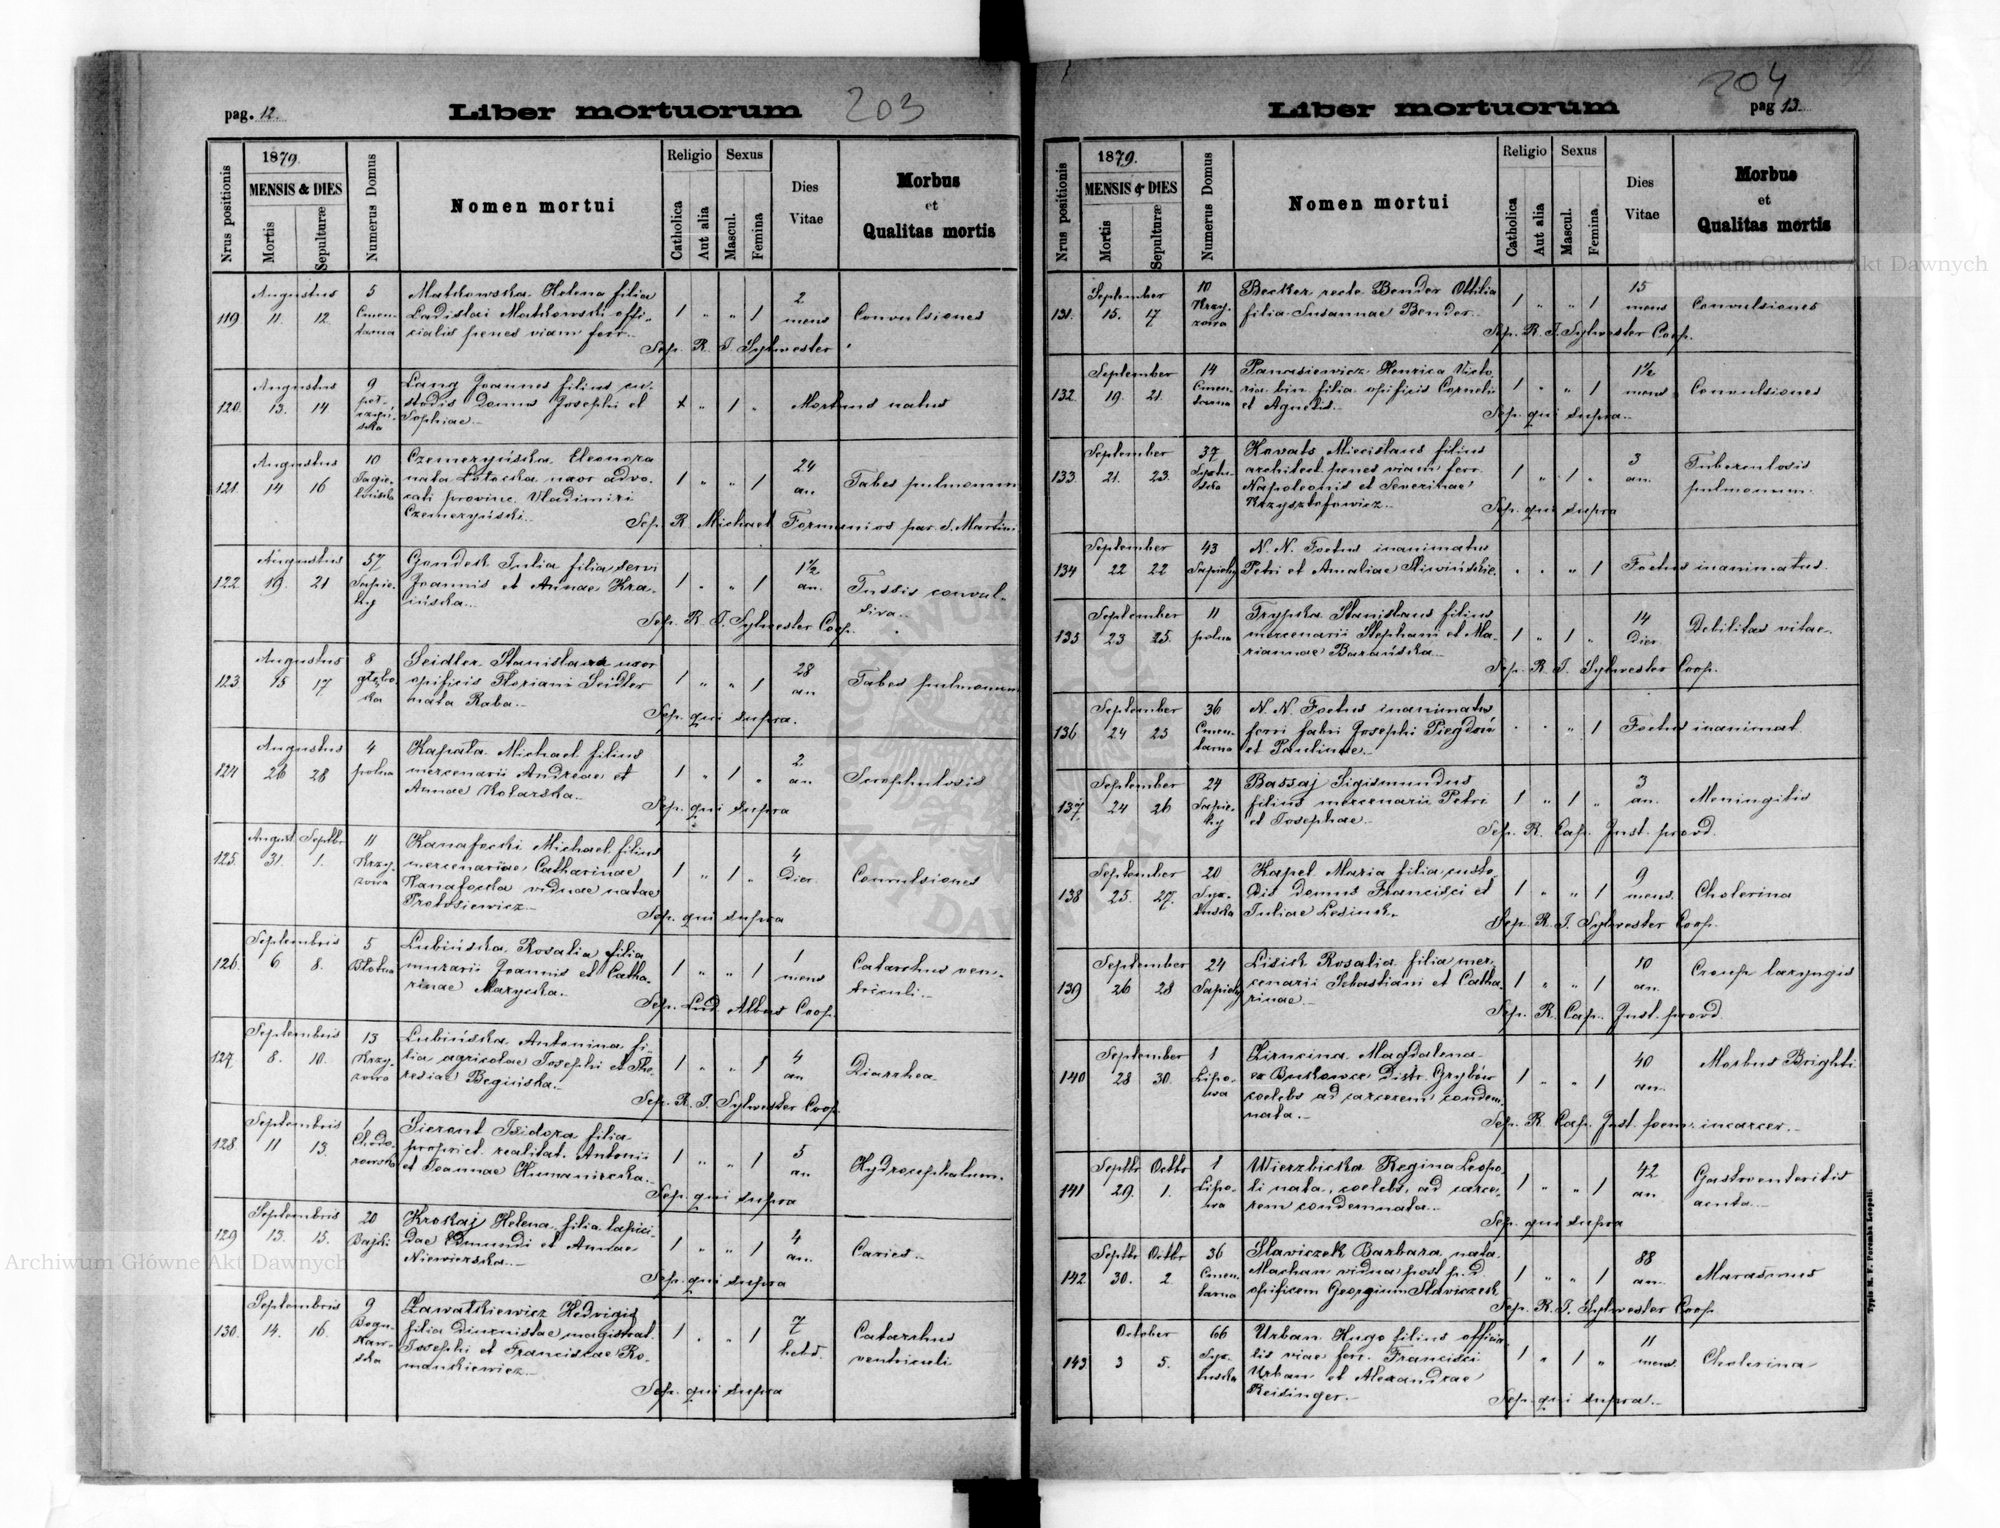 pag. 12.
Liber mortuorum
203
Nrus positionis
1879.
MENSIS & DIES
Mortis
Sepulturæ
Numerus Domus
Nomen mortui
Religio
Catholica
Aut alia
Sexus
Mascul.
Femina
Dies
Vitae
Morbus
et
Qualitas mortis
Augustus 5 Matkowska Helena filia 2
119 11. 12. Cmen- Ladislai Matkowski offi- 1 " " 1 mens Convulsiones
tarna cialis penes viam ferr.
Sep. R. J. Sylwester
Augustus 9 Lang Joannes filius cu-
120. 13. 14 stodis Domus Josephi et " 1 " Mortuus natus
Sophiae
Augustus 10 Czemeryńska Eleonora 24
121. 14 16 Jagie- nata uxor advo- 1 " " 1 an Tabes pulmonum
lońska cati provinc. Vladimiri
Czemeryński
Sep. R. Michael par. S. Martini
Augustus 57 Gondek Julia filia servi 1½
122. 19. 21 Sapie- Joannis et Annae Kra- 1 " " 1 an. Tussis convul-
hy ińska siva
Sep. R. J. Sylwester Coop.
Augustus 8 Seidler Stanislava uxor 28
123 15 17 głębo- opificis Floriani Seidler 1 " " 1 an Tabes pulmonum
ka nata Raba
Sep. qui supra.
Augustus 4 Kapała Michael filius 2
124 26 28 polna mercenarii Andreae et 1 " 1 " an Scrophulosis
Annae Kotarska
Sep. qui supra
August Septbr 11 Kanafocki Michael filius 4
125. 31. 1. Krzy- mercenariae Catharinae 1 " 1 " Dier. Convulsiones
żowa Kanafocka viduae natae
Protosiewicz
Sep. qui supra
Septembris 5 Lubińska Rosalia filia 1
126. 6 8. Błotna murarii Joannis et Catha- 1 " " 1 mens Catarrhus ven-
rinae Marycka triculi
Sep. Lud. Albus Coop.
Septembris 13 Lubińska Antonina fi- 4
127. 8. 10. Krzy- lia agricolae Josephi et The- 1 " " 1 an Diarrhea
żowa resiae Begińska
Sep. R. J. Sylwester Coop.
Septembris 1 Sierant Isidora filia 5
128. 11 13. Chodo- propriet. realitat. Antonii 1 " " 1 an Hydrocephalum.
rowska et Joannae Humaniecka
Sep. qui supra
Septembris 20 Krokaj Helena filia lapici- 4
129 13. 15. Bajki dae Edmundi et Annae 1 " " 1 an. Caries
Niewierska
Sep. qui supra
Septembris 9 Zawałkiewicz Hedvigis 7
130. 14. 16. Bogu- filia Diurnistae magistrat. 1 " " 1 hebd. Catarrhus
sław- Josephi et Franciscae Ro- ventriculi
ska mankiewicz
Sep. qui supra
204
Liber mortuorum
pag 13.
Nrus positionis
1879.
MENSIS & DIES
Mortis
Sepulturæ
Numerus Domus
Nomen mortui
Religio
Catholica
Aut alia
Sexus
Mascul.
Femina
Dies
Vitae
Morbus
et
Qualitas mortis
September 10 Becker recte Bender Ottilia 15
131. 15. 17 Krzy- filia Susannae Bender 1 " " 1 mens Convulsiones
żowa
Sep. R. J. Sylwester Coop.
September 14 Panasiewicz Henrica Victo- 1½
132. 19. 21. Cmen- ria bin. filia opificis Cornelii 1 " " 1 mens Convulsiones
tarna et Agnetis
Sep. qui supra
September 37 Kowats Miecislaus filius 3
133. 21. 23. architect. penes viam ferr. 1 " 1 " an. Tuberculosis
Napoleonis et Severinae pulmonum.
Krzysztofowicz
Sep. qui supra
September 43 N. N. Foetus inanimatus
134 22 22 Sapiehy Petri et Amaliae Śliwińskie " " " 1 Foetus inanimatus.
September 11 Trypka Stanislaus filius 14
135 23 25. polna mercenarii Stephani et Ma- 1 " 1 " Dier. Debilitas vitae
riannae Barańska
Sep. R. J. Sylwester Coop.
September 36 N. N. Foetus inanimatus
136 24 25 Cmen- ferri fabri Josephi Piegdoń " " " 1 Foetus inanimat.
tarna et Paulinae
September 24 Bassaj Sigismundus 3
137. 24 26 Sapie- filius mercenarii Petri 1 " 1 " an. Meningitis
hy et Josephae
Sep. R. Cap. Inst. provd.
September 20 Kapel Maria filia custo- 9
138 25. 27. dis domus Francisci et 1 " " 1 mens. Cholerina
Juliae Lesinsk.
Sep. R. J. Sylwester Coop.
September 24 Lisick Rosalia filia mer- 10
139 26 28 Sapiehy cenarii Sebastiani et Catha- 1 " " 1 an. Croup laryngis
rinae
Sep. R. Cap. Inst. provd.
September 1 Ziencina Magdalena 40
140 28 30. Lipo- ex Bukowce Distr. Grybów 1 " " 1 an. Morbus Brighti
wa coelebs ad carcerem condem-
nata.
Sep. R. Cap. Inst. foem. incarcer.
Septbr Octbr 1 Wierzbicka Regina Leopo- 42
141 29. 1. Lipo- li nata, coelebs, ad carce- 1 " " 1 an. Gastroenteritis
wa rem condemnata acuta
Sep. qui supra
Septbr Octbr 36 Slaviczek Barbara nata 88
142 30. 2 Cmen- Machan vidua post p. d. 1 " " 1 an. Marasmus
tarna opificem Georgium Slaviczek
Sep. R. J. Sylwester Coop.
October 66 Urban Hugo filius officia- 11
143 3 5. lis viae ferr. Francisci 1 " 1 " mens. Cholerina
Urban et Alexandrae
Reisinger
Sep. qui supra
Typis M. F. Poremba Leopoli.
Archiwum Główne Akt Dawnych
Archiwum Główne Akt Dawnych